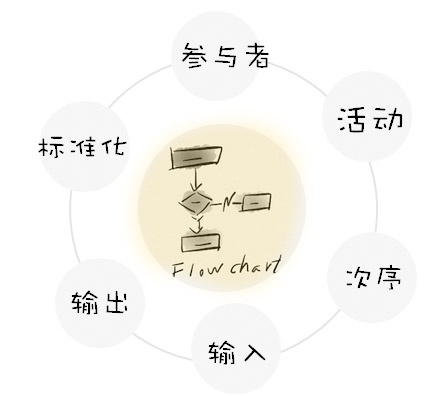 参与者
活动
次序
输入
输出
标准化
N
Y
Flow chart